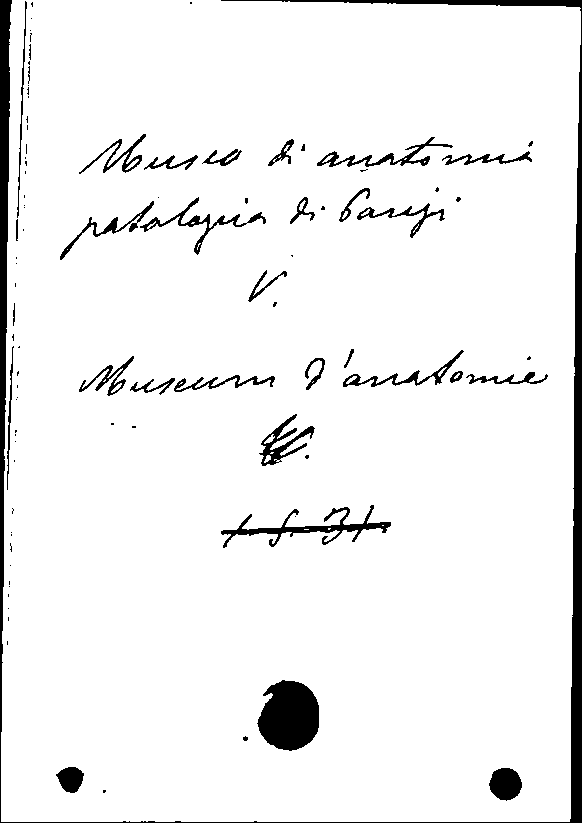 Museo di anatomia
patalogica di Parigi
V.
Museum d'anatomie